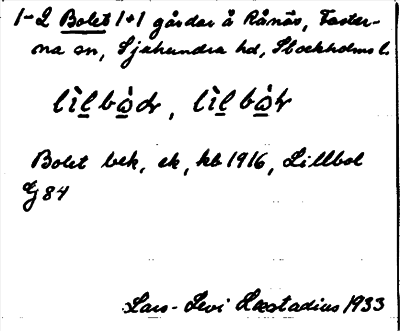 1-2 Bolet 1+1 gårdar å Rånäs, Faster-
na sn, Sjuhundra hd, Stockholms l.
lìlbòdr, lìlbòtr
Bolet bek, ek, kb 1916, Lillbol
Gj 84
Lars-Levi Læstadius 1933